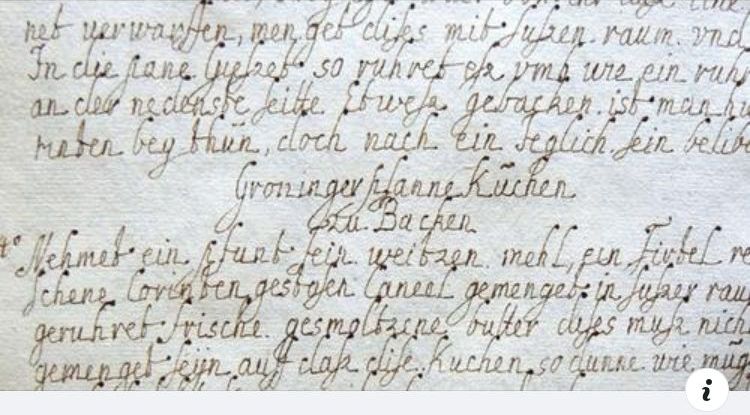 net verwarffen, men get dises mit süszen raum. vnd
In die pane giesset. so ruhret esz vmb wie ein ruhr
an der nedenste seitte Etwesz gebacken ist man
rinden bey thün, doch nach ein Jeglich sein belibe
Groninger pfanne Küchen
zu Backen
4º Nehmet ein pfunt fein weitzen mehl, ein Firtel re
schene Corinten, gestosen Caneel gemenget in süszer rau
geruhret frische gesmoltzene butter dises musz nich
gemenget seijn auff dasz dise Kuchen so dunne wie müg